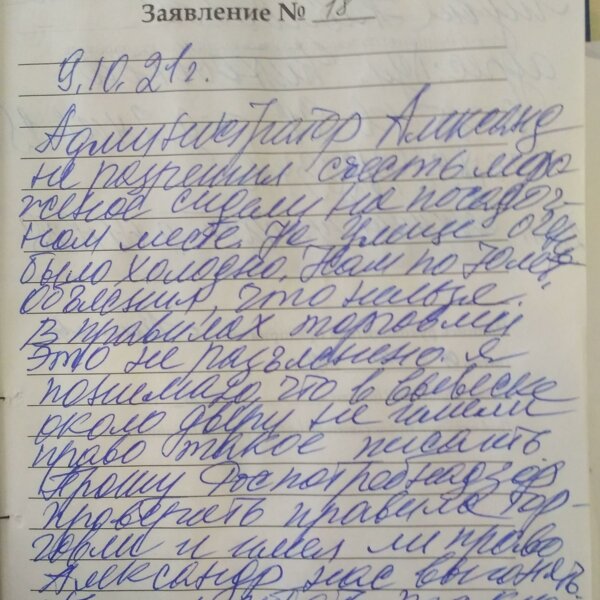 Заявление № 18
9.10.21г.
Администратор Александ
не разрешил съесть моро
женое сидели на посадоч-
ном месте. На улице очень
было холодно. Нам по
обьеснил, что нельзя.
В правилах торговли
это не разъяснено. Я
понимаю, что в вывеске
около двери не имели
право такое писать
Прошу Роспотребнадзор
проверить правила тор-
говли и имел ли право
Александр нас выгонять